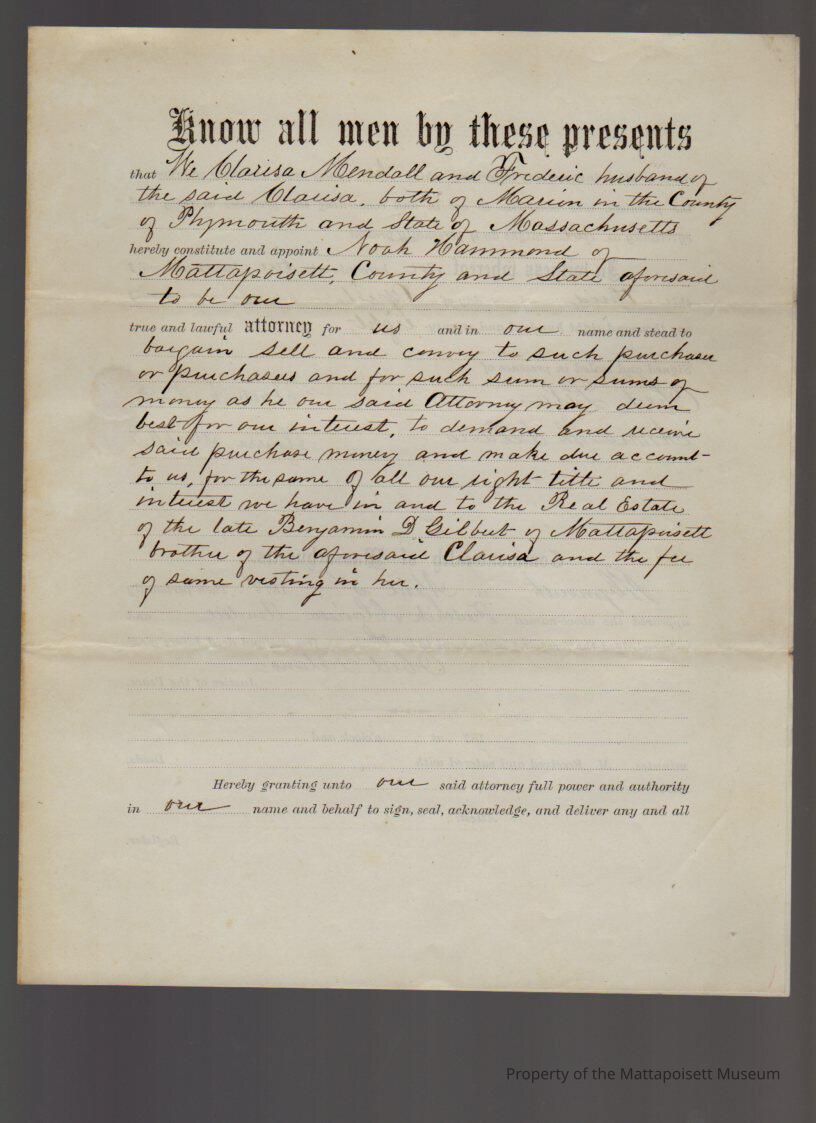 Know all men by these presents
that We Clarisa Mendall and Frederic husband of
the said Clarisa, both of Marion in the County
of Plymouth and State of Massachusetts
hereby constitute and appoint Noah Hammond of
Mattapoisett, County and State aforesaid
to be our
true and lawful attorney for us and in our name and stead to
bargain sell and convey to such purchaser
or purchasers and for such sum or sums of
money as he our said Attorney may deem
best for our interest, to demand and receive
said purchase money and make due account
to us, for the same of all our right title and
interest we have in and to the Real Estate
of the late Benjamin D Gilbert of Mattapoisett
brother of the aforesaid Clarisa and the fee
of same vesting in her.
Hereby granting unto our said attorney full power and authority
in our name and behalf to sign, seal, acknowledge, and deliver any and all
Property of the Mattapoisett Museum